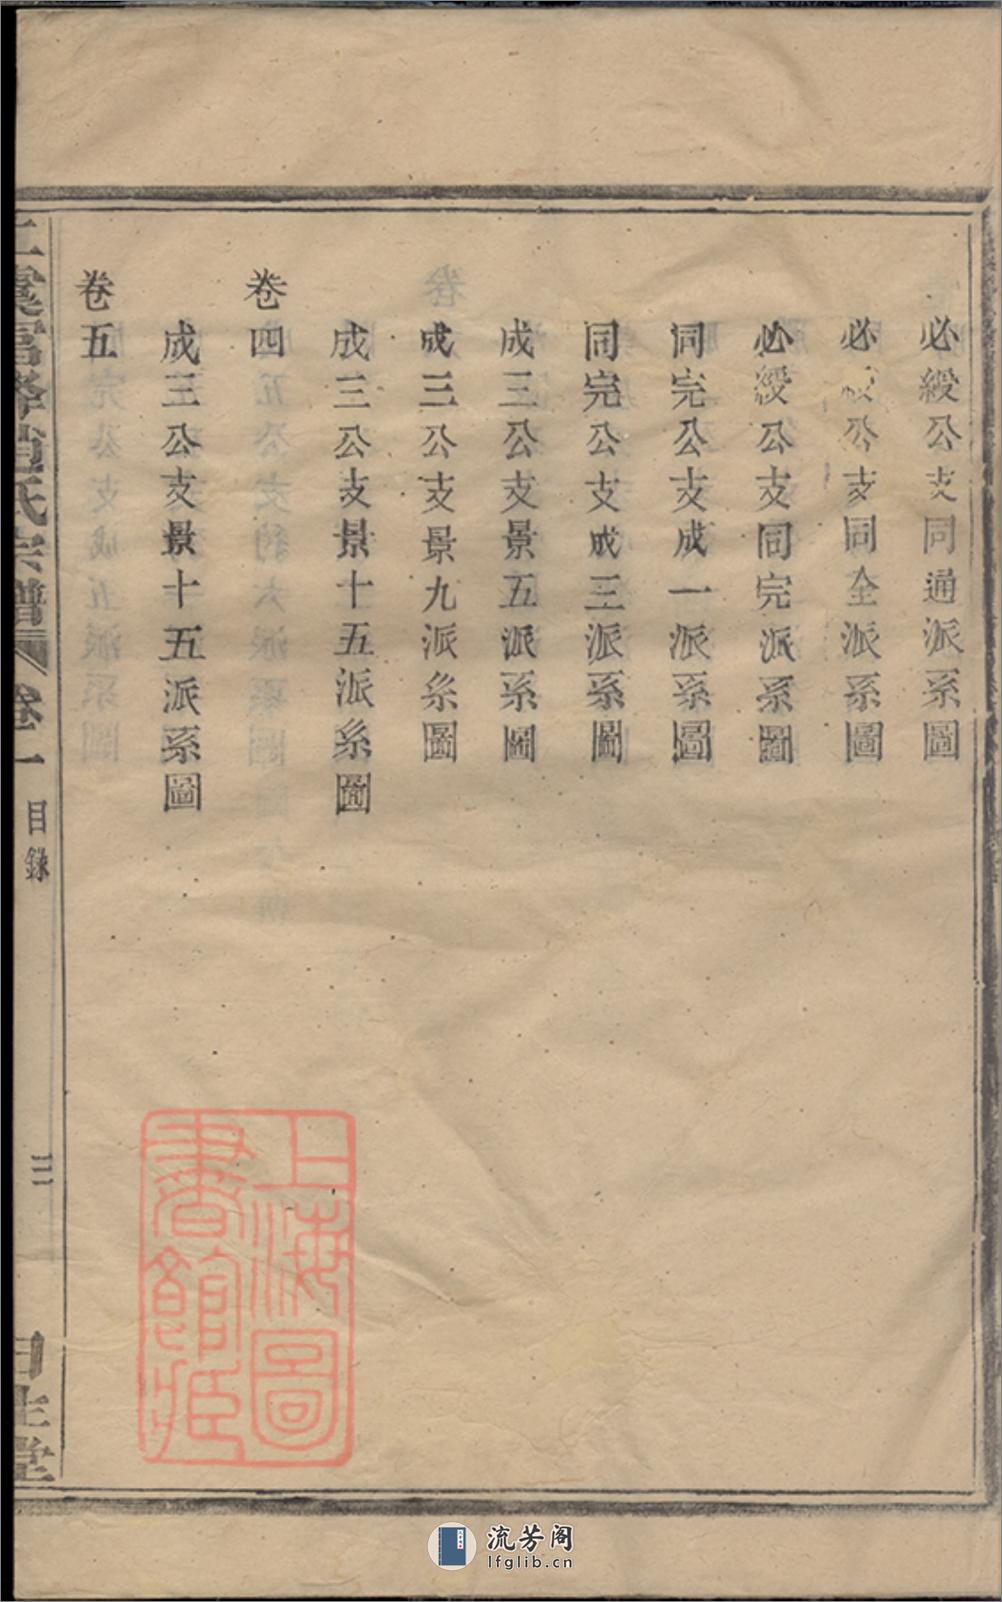 必綬公支同通派系圖
必綬公支同全派系圖
必綬公支同完派系圖
同完公支成一派系圖
同完公支成三派系圖
成三公支景五派系圖
成三公支景九派系圖
成三公支景十五派系圖
卷四
成三公支景十五派系圖
卷五
上虞富峰趙氏宗譜 卷一 目錄 三
堂
上海圖書館藏
流芳阁
lfglib.cn